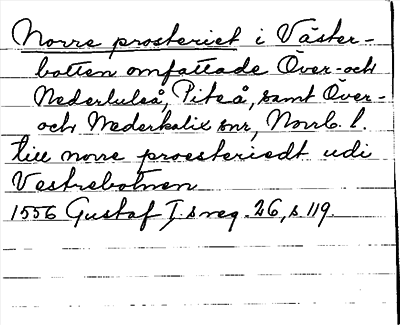 Norre prosteriet i Väster-
botten omfattade Över- och
Nederluleå, Piteå, samt Över-
och Nederkalix snr, Norrb. l.
till norre proesteriedt udi
Vestrebotnen
1556 Gustaf I:s reg. 26, s. 119.